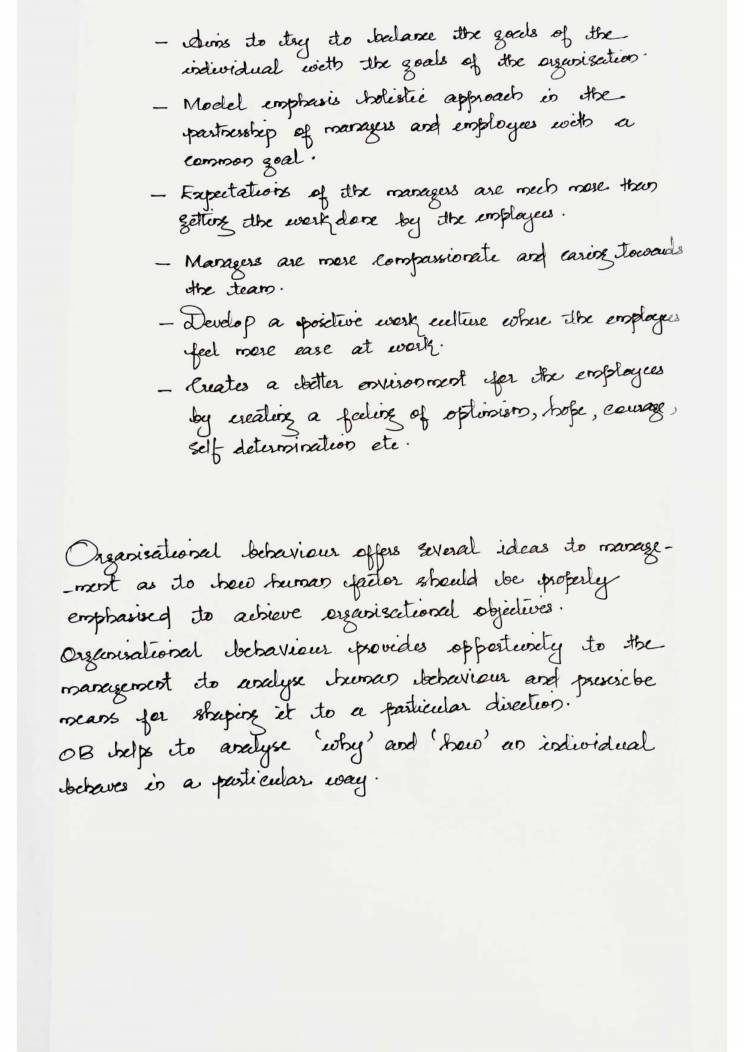 - Aims to try to balance the goals of the
individual with the goals of the organisation.
- Model emphasis holistic approach in the
partnership of managers and employees with a
common goal.
- Expectations of the managers are much more than
getting the work done by the employees.
- Managers are more compassionate and caring towards
the team.
- Develop a positive work culture where the employees
feel more ease at work.
- Creates a better environment for the employees
by creating a feeling of optimism, hope, courage,
self determination etc.
Organisational behaviour offers several ideas to manage-
-ment as to how human factor should be properly
emphasised to achieve organisational objectives.
Organisational behaviour provides opportunity to the
management to analyse human behaviour and prescribe
means for shaping it to a particular direction.
OB helps to analyse 'why' and 'how' an individual
behaves in a particular way.